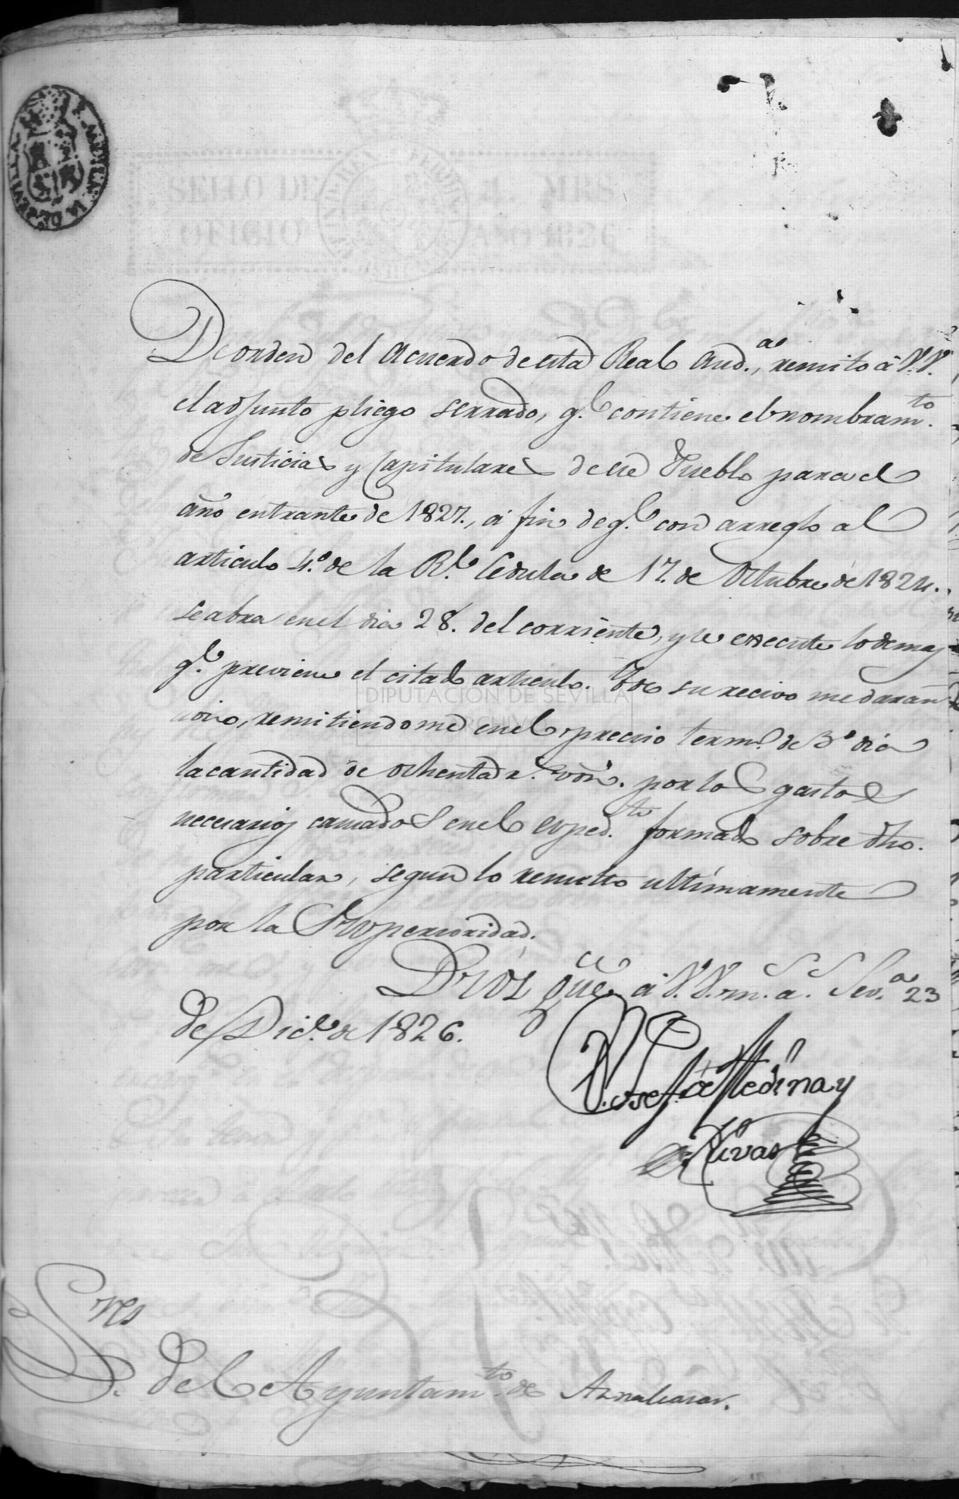 SELLO DE 4 MRS
OFICIO AÑO 1826
De orden del Acuerdo de esta Real Aud.ª, remito á V.V.
el adjunto pliego serrado, q.e contiene el nombram.to
de Justicias y Capitulares de ese Pueblo para el
año entrante de 1827., á fin de q.e con arreglo al
articulo 4.º de la R.l Cedula de 17. de Octubre de 1824.
se abra en el dia 28. del corriente, y se execute lo demas
q.e previene el citado articulo. De su recivo me daran
aviso, remitiendome en el preciso term.o de 3.º dia
la cantidad de ochenta r.s von. por los gastos
necesarios causados en el exped.te formado sobre dho.
particular, segun lo resuelto ultimamente
por la Superioridad.
Dios gue á V.V. m.s a.s Sev.ª 23
de Dic.e de 1826.
D. Josef de Medina y
de Rivas
S.res del Ayuntam.to de Aznalcasar.
DIPUTACIÓN DE SEVILLA